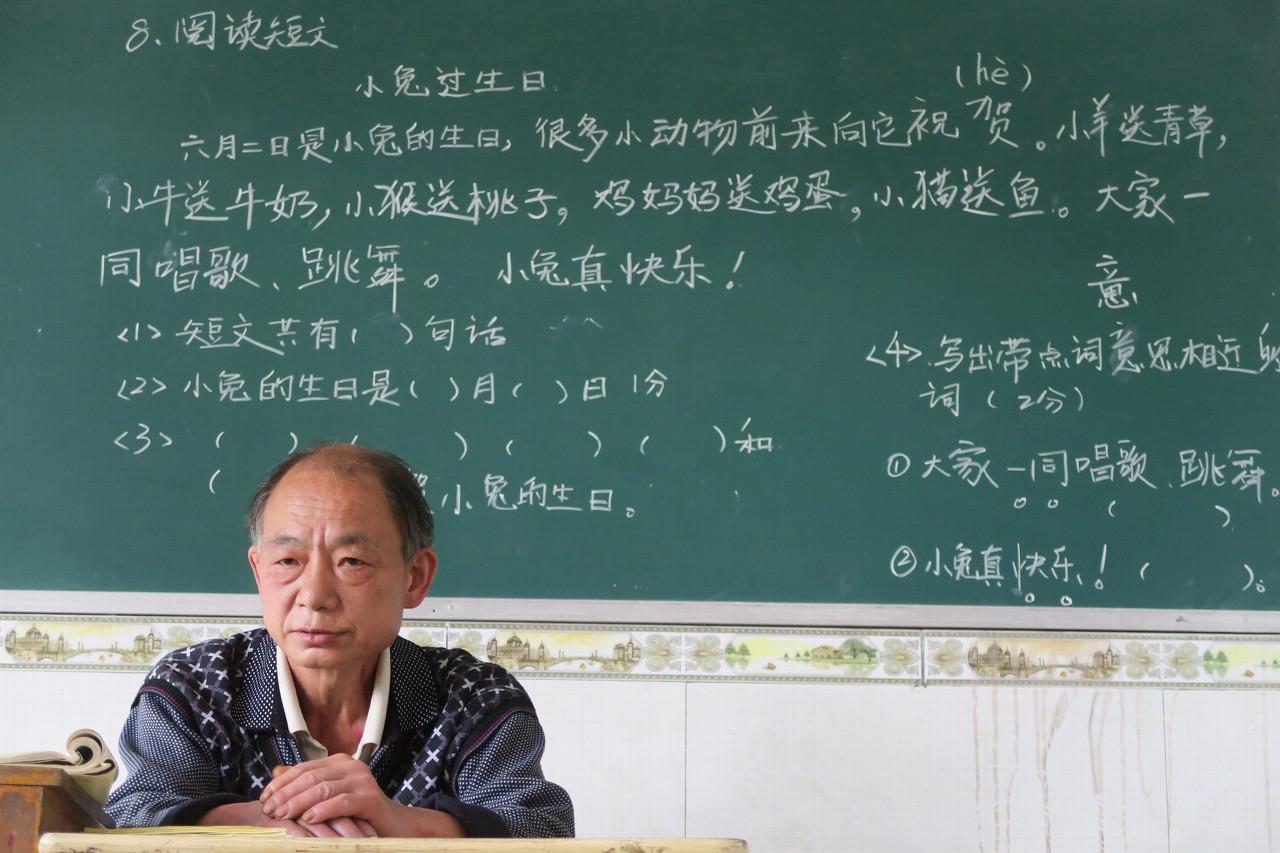 8、阅读短文
小兔过生日
(hè)
六月二日是小兔的生日,很多小动物前来向它祝贺。小羊送青草,
小牛送牛奶,小猴送桃子,鸡妈妈送鸡蛋,小猫送鱼。大家一
同唱歌、跳舞。 小兔真快乐!
<1> 短文共有( )句话
<2> 小兔的生日是( )月( )日 1分
<3> ( ) ( ) ( ) ( )和
( 小兔的生日。
意
<4> 写出带点词意思相近的
词(2分)
① 大家一同唱歌、跳舞。
( )
② 小兔真快乐!( )。